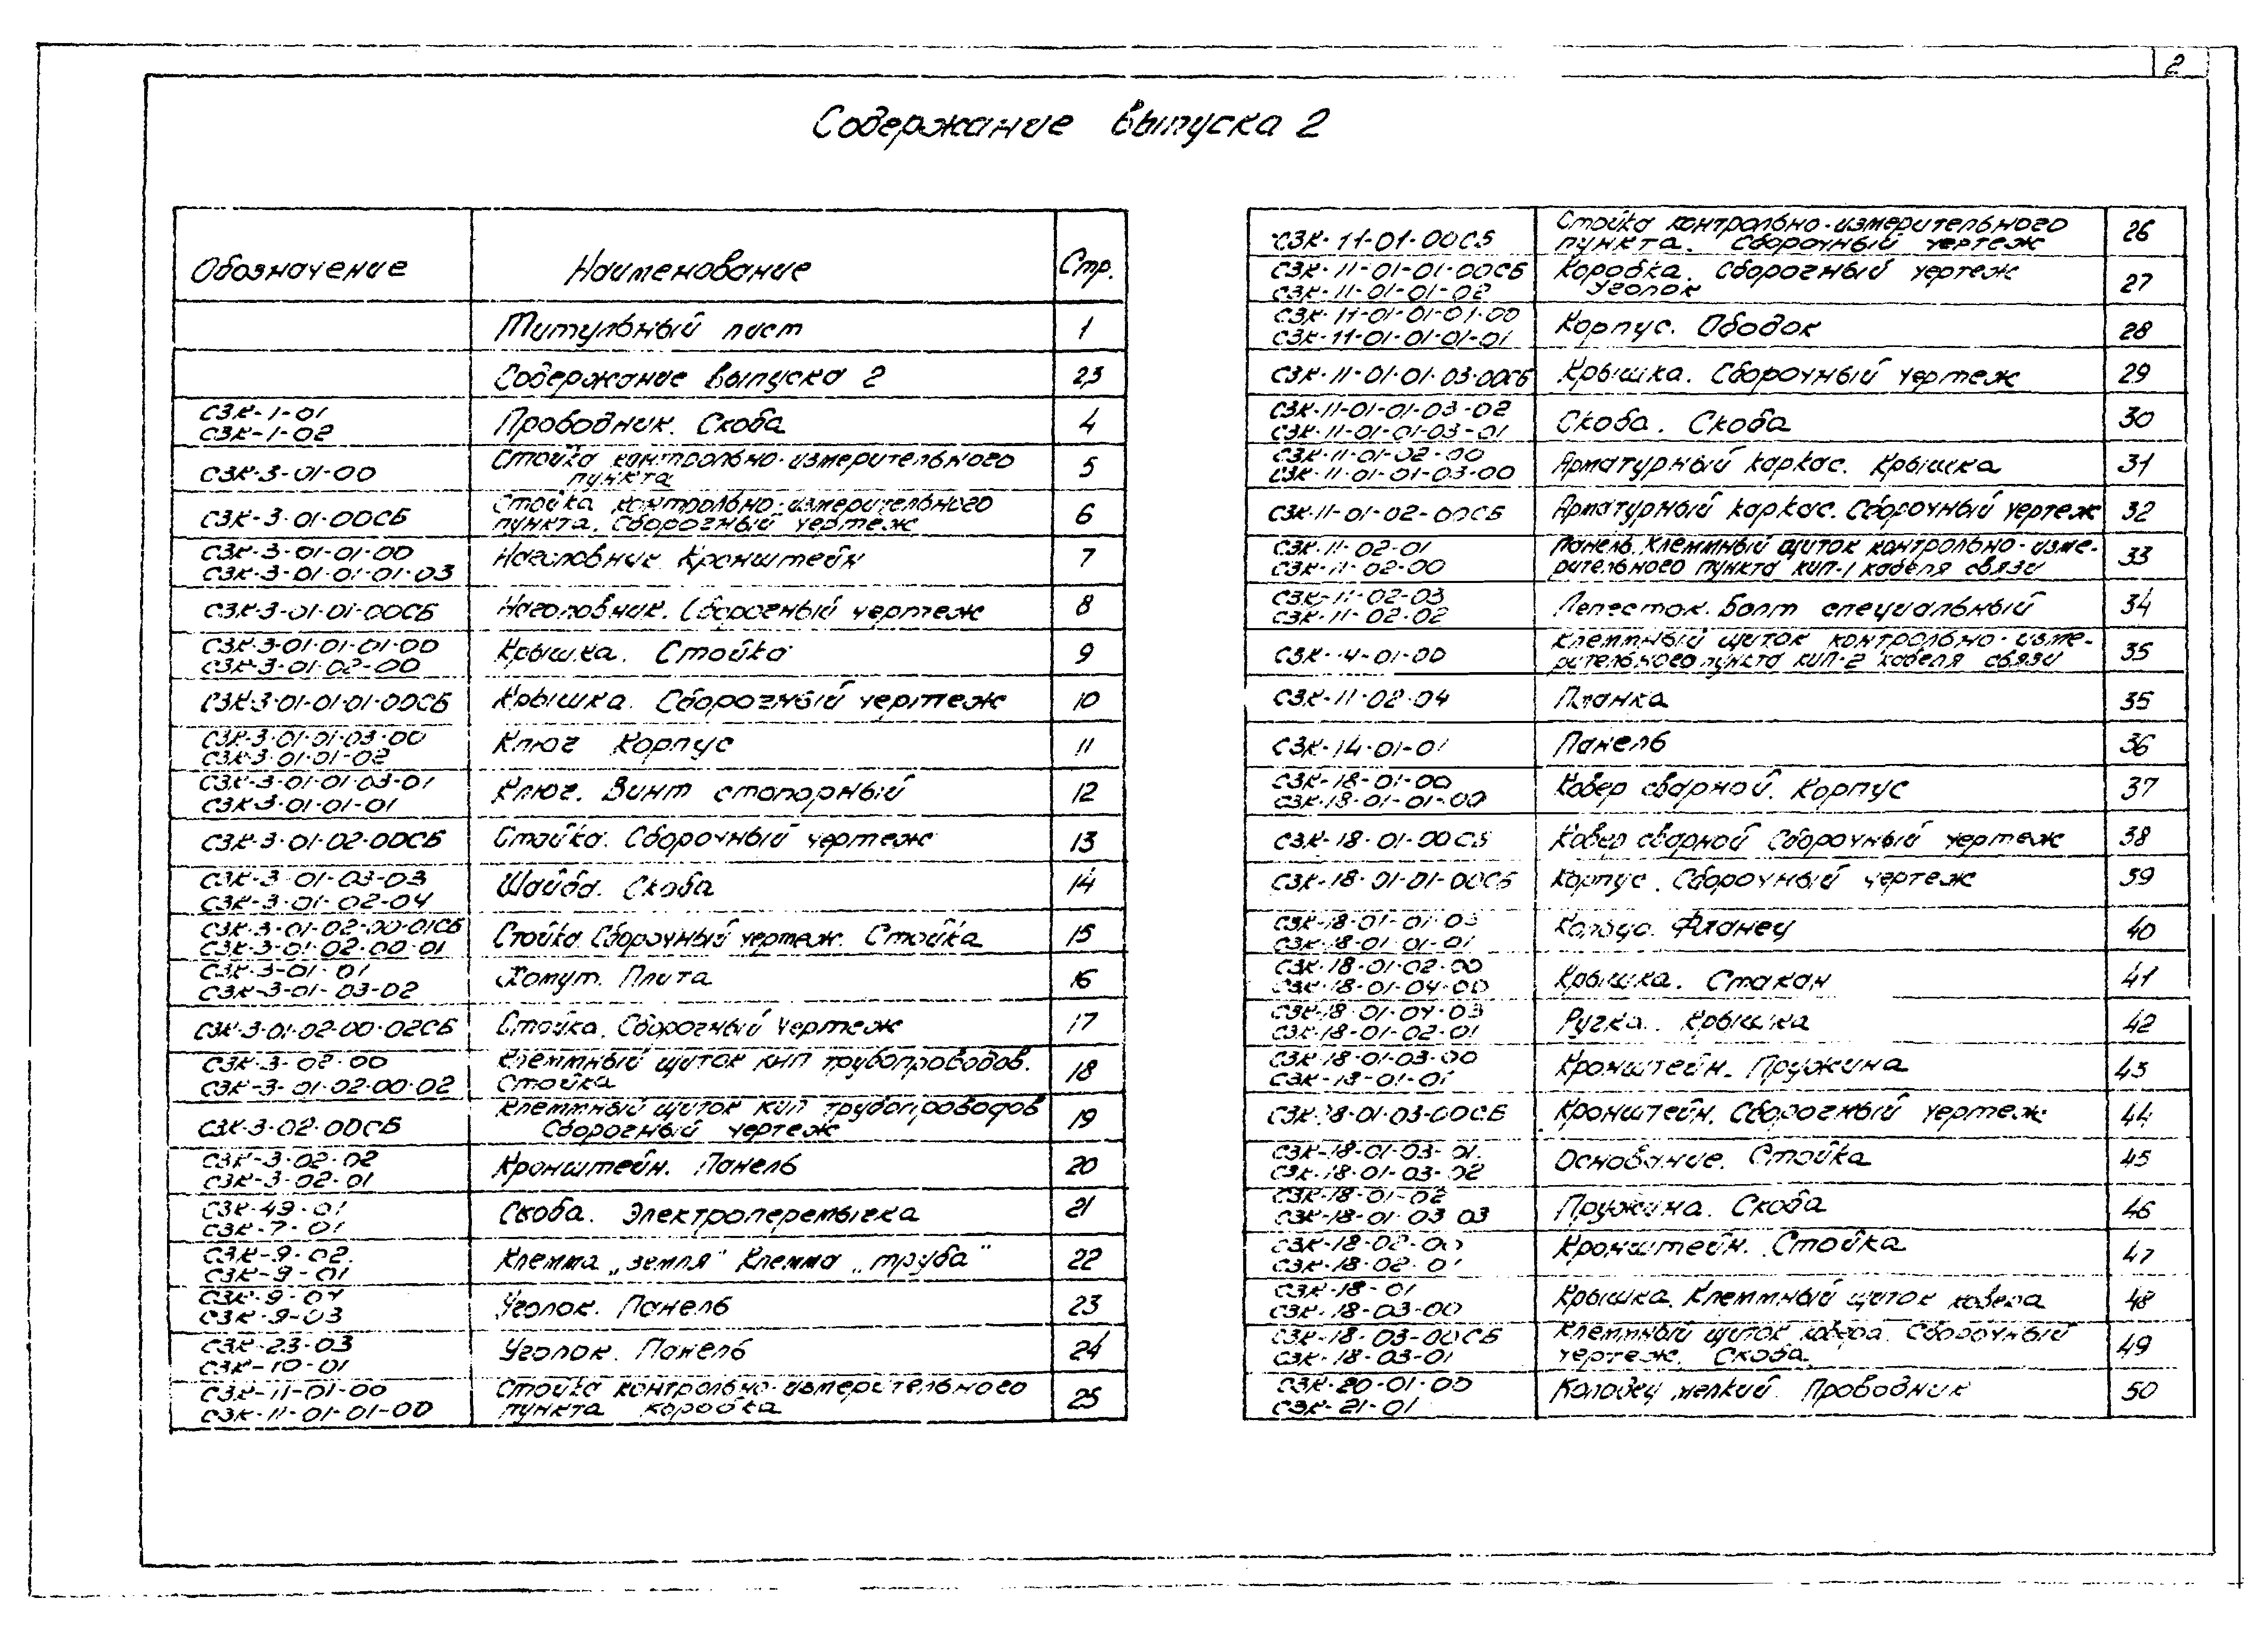 2
Содержание выпуска 2
Обозначение Наименование Стр.
Титульный лист 1
Содержание выпуска 2 2,3
СЗК-1-01
СЗК-1-02 Проводник. Скоба 4
СЗК-3-01-00 Стойка контрольно-измерительного
пункта 5
СЗК-3-01-00СБ Стойка контрольно-измерительного
пункта. Сборочный чертеж 6
СЗК-3-01-01-00
СЗК-3-01-01-01-03 Наголовник. Кронштейн 7
СЗК-3-01-01-00СБ Наголовник. Сборочный чертеж 8
СЗК-3-01-01-01-00
СЗК-3-01-02-00 Крышка. Стойка 9
СЗК-3-01-01-01-00СБ Крышка. Сборочный чертеж 10
СЗК-3-01-01-03-00
СЗК-3-01-01-02 Ключ Корпус 11
СЗК-3-01-01-03-01
СЗК-3-01-01-01 Ключ. Винт стопорный 12
СЗК-3-01-02-00СБ Стойка. Сборочный чертеж 13
СЗК-3-01-03-03
СЗК-3-01-02-04 Шайба. Скоба 14
СЗК-3-01-02-00-01СБ
СЗК-3-01-02-00-01 Стойка Сборочный чертеж. Стойка 15
СЗК-3-01-01
СЗК-3-01-03-02 Хомут. Плита 16
СЗК-3-01-02-00-02СБ Стойка. Сборочный чертеж 17
СЗК-3-02-00
СЗК-3-01-02-00-02 Клеммный щиток КИП трубопроводов.
Стойка 18
СЗК-3-02-00СБ Клеммный щиток КИП трубопроводов
Сборочный чертеж 19
СЗК-3-02-02
СЗК-3-02-01 Кронштейн. Панель 20
СЗК-49-01
СЗК-7-01 Скоба. Электроперемычка 21
СЗК-9-02.
СЗК-9-01 Клемма „земля" Клемма „труба" 22
СЗК-9-04
СЗК-9-03 Уголок. Панель 23
СЗК-23-03
СЗК-10-01 Уголок. Панель 24
СЗК-11-01-00
СЗК-11-01-01-00 Стойка контрольно-измерительного
пункта коробка 25
СЗК-11-01-00СБ Стойка контрольно-измерительного
пункта. Сборочный чертеж 26
СЗК-11-01-01-00СБ
СЗК-11-01-01-02 Коробка. Сборочный чертеж
Уголок 27
СЗК-11-01-01-01-00
СЗК-11-01-01-01-01 Корпус. Ободок 28
СЗК-11-01-01-03-00СБ Крышка. Сборочный чертеж 29
СЗК-11-01-01-03-02
СЗК-11-01-01-03-01 Скоба. Скоба 30
СЗК-11-01-02-00
СЗК-11-01-01-03-00 Арматурный каркас. Крышка 31
СЗК-11-01-02-00СБ Арматурный каркас. Сборочный чертеж 32
СЗК-11-02-01
СЗК-11-02-00 Панель. Клеммный щиток контрольно-изме-
рительного пункта КИП-1 кабеля связи 33
СЗК-11-02-03
СЗК-11-02-02 Лепесток. Болт специальный 34
СЗК-14-01-00 Клеммный щиток контрольно-изме-
рительного пункта КИП-2 кабеля связи 35
СЗК-11-02-04 Планка 35
СЗК-14-01-01 Панель 36
СЗК-18-01-00
СЗК-18-01-01-00 Ковер сварной. Корпус 37
СЗК-18-01-00СБ Ковер сварной Сборочный чертеж 38
СЗК-18-01-01-00СБ Корпус. Сборочный чертеж 39
СЗК-18-01-01-03
СЗК-18-01-01-01 Кольцо. Фланец 40
СЗК-18-01-02-00
СЗК-18-01-04-00 Крышка. Стакан 41
СЗК-18-01-04-03
СЗК-18-01-02-01 Ручка. Крышка 42
СЗК-18-01-03-00
СЗК-18-01-01 Кронштейн. Пружина 43
СЗК-18-01-03-00СБ Кронштейн. Сборочный чертеж 44
СЗК-18-01-03-01.
СЗК-18-01-03-02 Основание. Стойка 45
СЗК-18-01-02
СЗК-18-01-03 03 Пружина. Скоба 46
СЗК-18-02-00
СЗК-18-02-01 Кронштейн. Стойка 47
СЗК-18-01
СЗК-18-03-00 Крышка. Клеммный щиток ковера 48
СЗК-18-03-00СБ
СЗК-18-03-01 Клеммный щиток ковера. Сборочный
чертеж. Скоба. 49
СЗК-20-01-00
СЗК-21-01 Колодец мелкий. Проводник 50